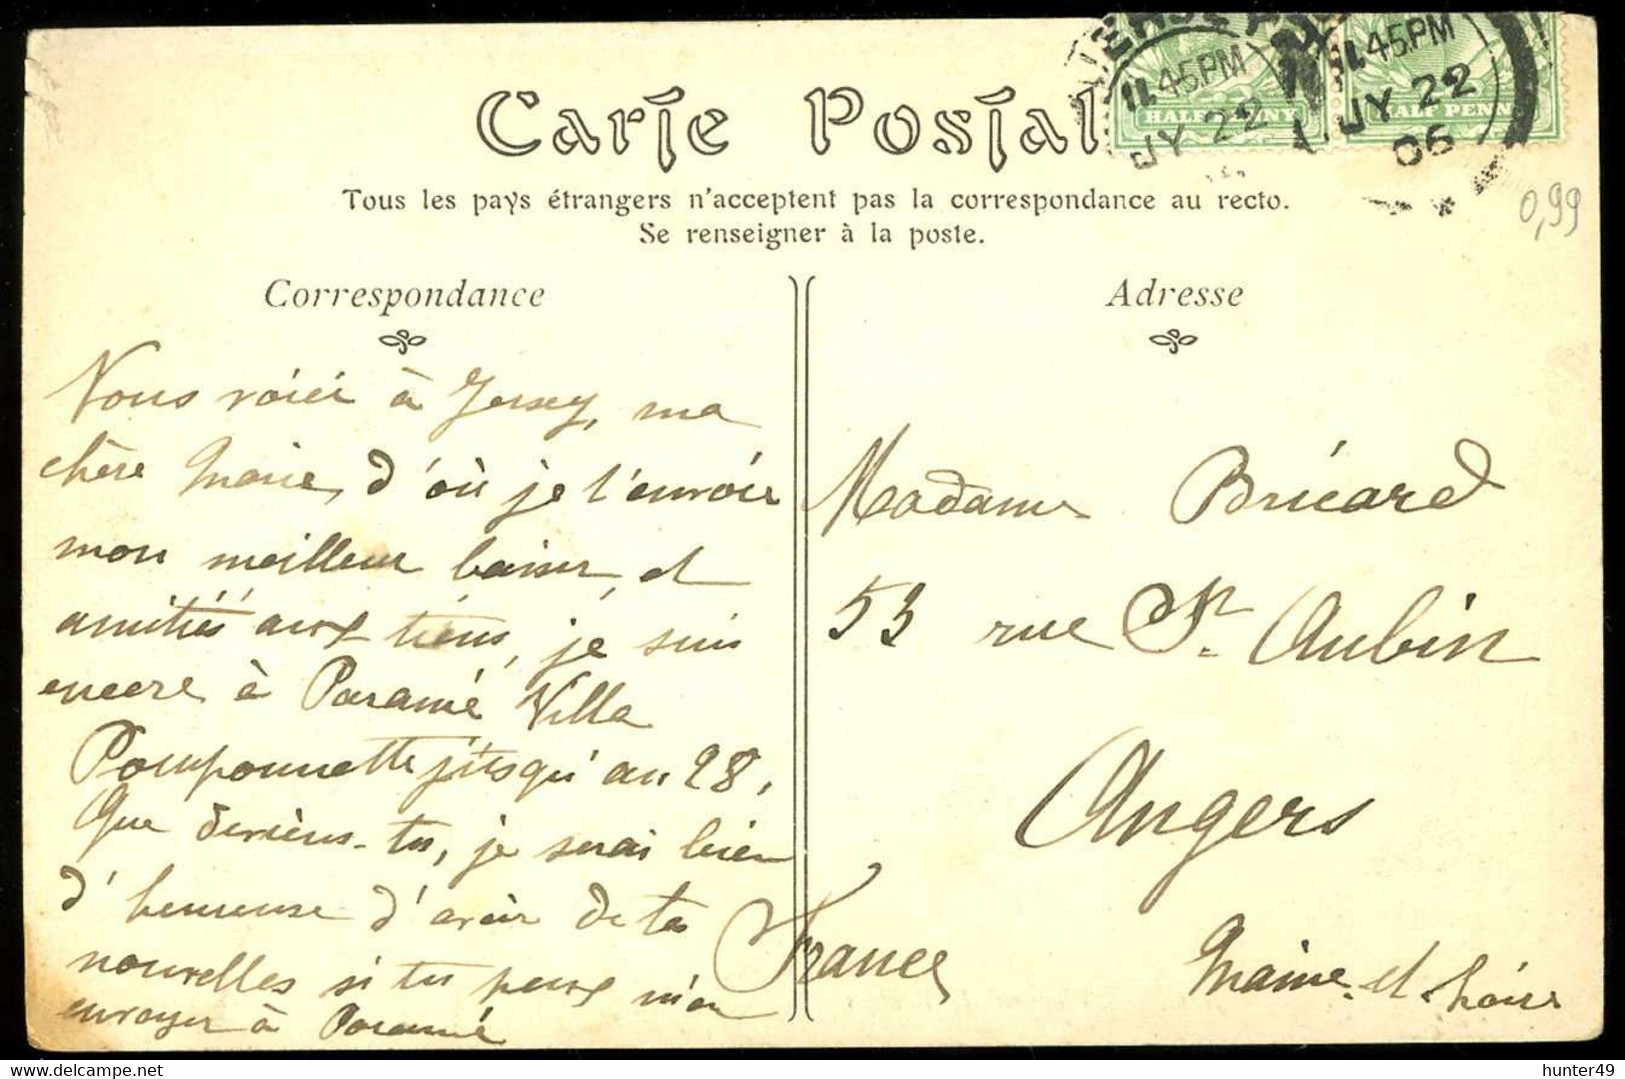 Carte Postale
HALF PENNY
HALF PENNY
11.45PM
JY 22
11.45PM
JY 22
06
0,99
Tous les pays étrangers n'acceptent pas la correspondance au recto.
Se renseigner à la poste.
Correspondance
Nous voici à Jersey, ma
chère Marie, d'où je t'envoie
mon meilleur baiser et
amitiés aux tiens, je suis
encore à Paramé Villa
Pomponnette jusqu'au 28,
Que deviens-tu, je serai bien
d'heureuse d'avoir de tes
nouvelles si tu peux m'en
envoyer à Paramé
Adresse
Madame Bricard
53 rue St. Aubin
Angers
France
Maine-et-Loire
hunter49